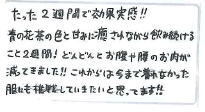 たった2週間で効果実感!!
青の花茶の色と甘みに癒されながら飲み続ける
こと2週間！どんどんとお腹や腰のお肉が
減ってきました!!これからは今まで着れなかった
服にも挑戦していきたいと思ってます!!